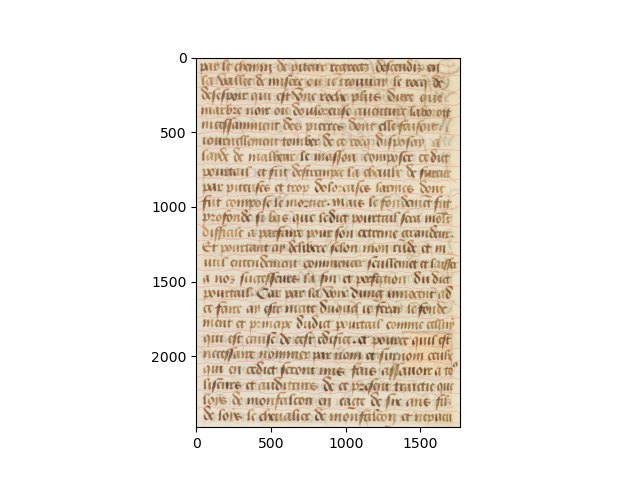 par le chemin de piteux regretz descendiz en
la vallee de misere ou ie trouuay le rocq de
desespoir qui est dune roche plus dure que
marbre noir ou douloureuse auenture labouroit
incessamment des pierres dont elle faisoit
tomber de ce rocq disposay a
layde de malheur le masson composer cedict
pourtail et fut destrempe la chaulx de
par piteuses et trop doloreuses larmes dont
fut compose le mortier. Mais le fondement fut
profonde si bas que ledict pourtail sera moult
difficile a parfaire pour son extreme grandeur.
Et pourtant ay delibere selon mon rude et in
util entendement commencer seullement et laisser
a noz successeurs la fin et perfection dudict
pourtail. Car par la dung innocent ad
ce faire ay este le fonde
ment et principe dudict pourtail comme celluy
qui est cause de cest edifice. et pource quil est
necessaire nommer par nom et surnom ceulx
qui en cedict seront mis fais assauoir a to9
liseurs et auditeurs de ce present traictie que
loys de monfalcon en eage de six ans filz
de loys le cheualier de monfalcon et nepueu